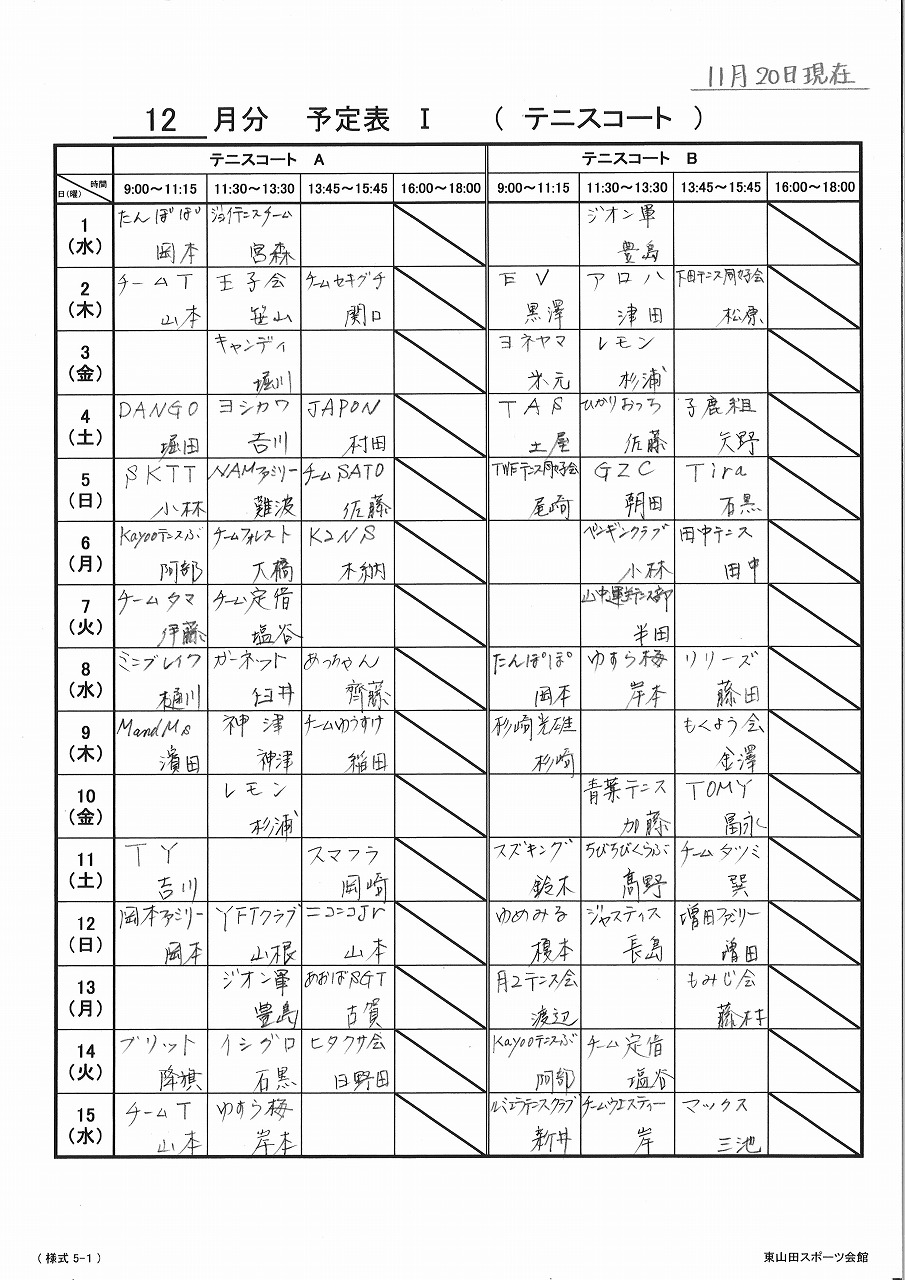 11月20日現在
12 月分 予定表 Ⅰ ( テニスコート )
テニスコート A テニスコート B
時間
日(曜) 9:00～11:15 11:30～13:30 13:45～15:45 16:00～18:00 9:00～11:15 11:30～13:30 13:45～15:45 16:00～18:00
たんぽぽ ジョイテニスチーム ジオン軍
1
(水) 岡本 宮森 豊島
チームT 王子会 チームセキグチ EV アロハ 下田テニス同好会
2
(木) 山本 笹山 関口 黒澤 津田 松原
キャンディ ヨネヤマ レモン
3
(金) 堀川 米元 杉浦
DANGO ヨシカワ JAPON TAS ひかりおっち 子鹿組
4
(土) 堀田 吉川 村田 土屋 佐藤 矢野
SKTT NAMファミリー チームSATO テニス同好会 GZC Tira
5
(日) 小林 難波 佐藤 尾崎 朝田 石黒
Kayooテニスぶ チームフォレスト K2NS ペンギンクラブ 田中テニス
6
(月) 阿部 大橋 木納 小林 田中
チームタマ チーム定借 山中軍テニス部
7
(火) 伊藤 塩谷 半田
ミニブレイク ガーネット あっちゃん たんぽぽ ゆすら梅 リリーズ
8
(水) 樋川 臼井 齊藤 岡本 岸本 藤田
MandMs 神津 チームゆうすけ 杉崎光雄 もくよう会
9
(木) 濱田 神津 稲田 杉崎 金澤
レモン 青葉テニス TOMY
10
(金) 杉浦 加藤 冨永
TY スマフラ スズキング ちびちびくらぶ チームタツミ
11
(土) 吉川 岡崎 鈴木 髙野 巽
岡本ファミリー YFTクラブ ニコニコJr ゆめみる ジャスティス 増田ファミリー
12
(日) 岡本 山根 山本 榎本 長島 増田
ジオン軍 あおばSGT 月2テニス会 もみじ会
13
(月) 豊島 古賀 渡辺 藤村
ブリット イシグロ ヒタクサ会 Kayooテニスぶ チーム定借
14
(火) 降旗 石黒 日野田 阿部 塩谷
チームT ゆすら梅 ルミエラテニスクラブ チームウエスティー マックス
15
(水) 山本 岸本 新井 岸 三池
(様式 5-1) 東山田スポーツ会館